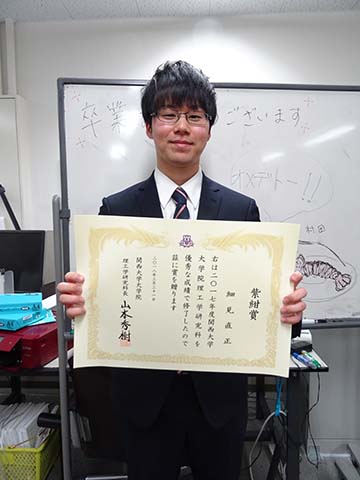 卒業
ございます
オメデトー!!
村田
紫紺賞
細見直正
右は二〇一七年度関西大学
大学院理工学研究科を
優秀な成績で修了したので
茲に賞を贈ります
二〇一八年三月二一日
関西大学大学院
理工学研究科長 山本秀樹